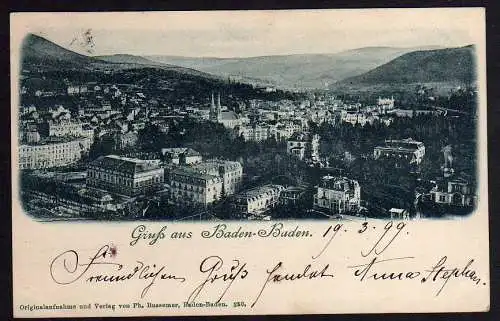 Gruß aus Baden-Baden. 19.3.99.
Freundlichen Gruß sendet Anna Stephan.
Originalaufnahme und Verlag von Ph. Bussemer, Baden-Baden.